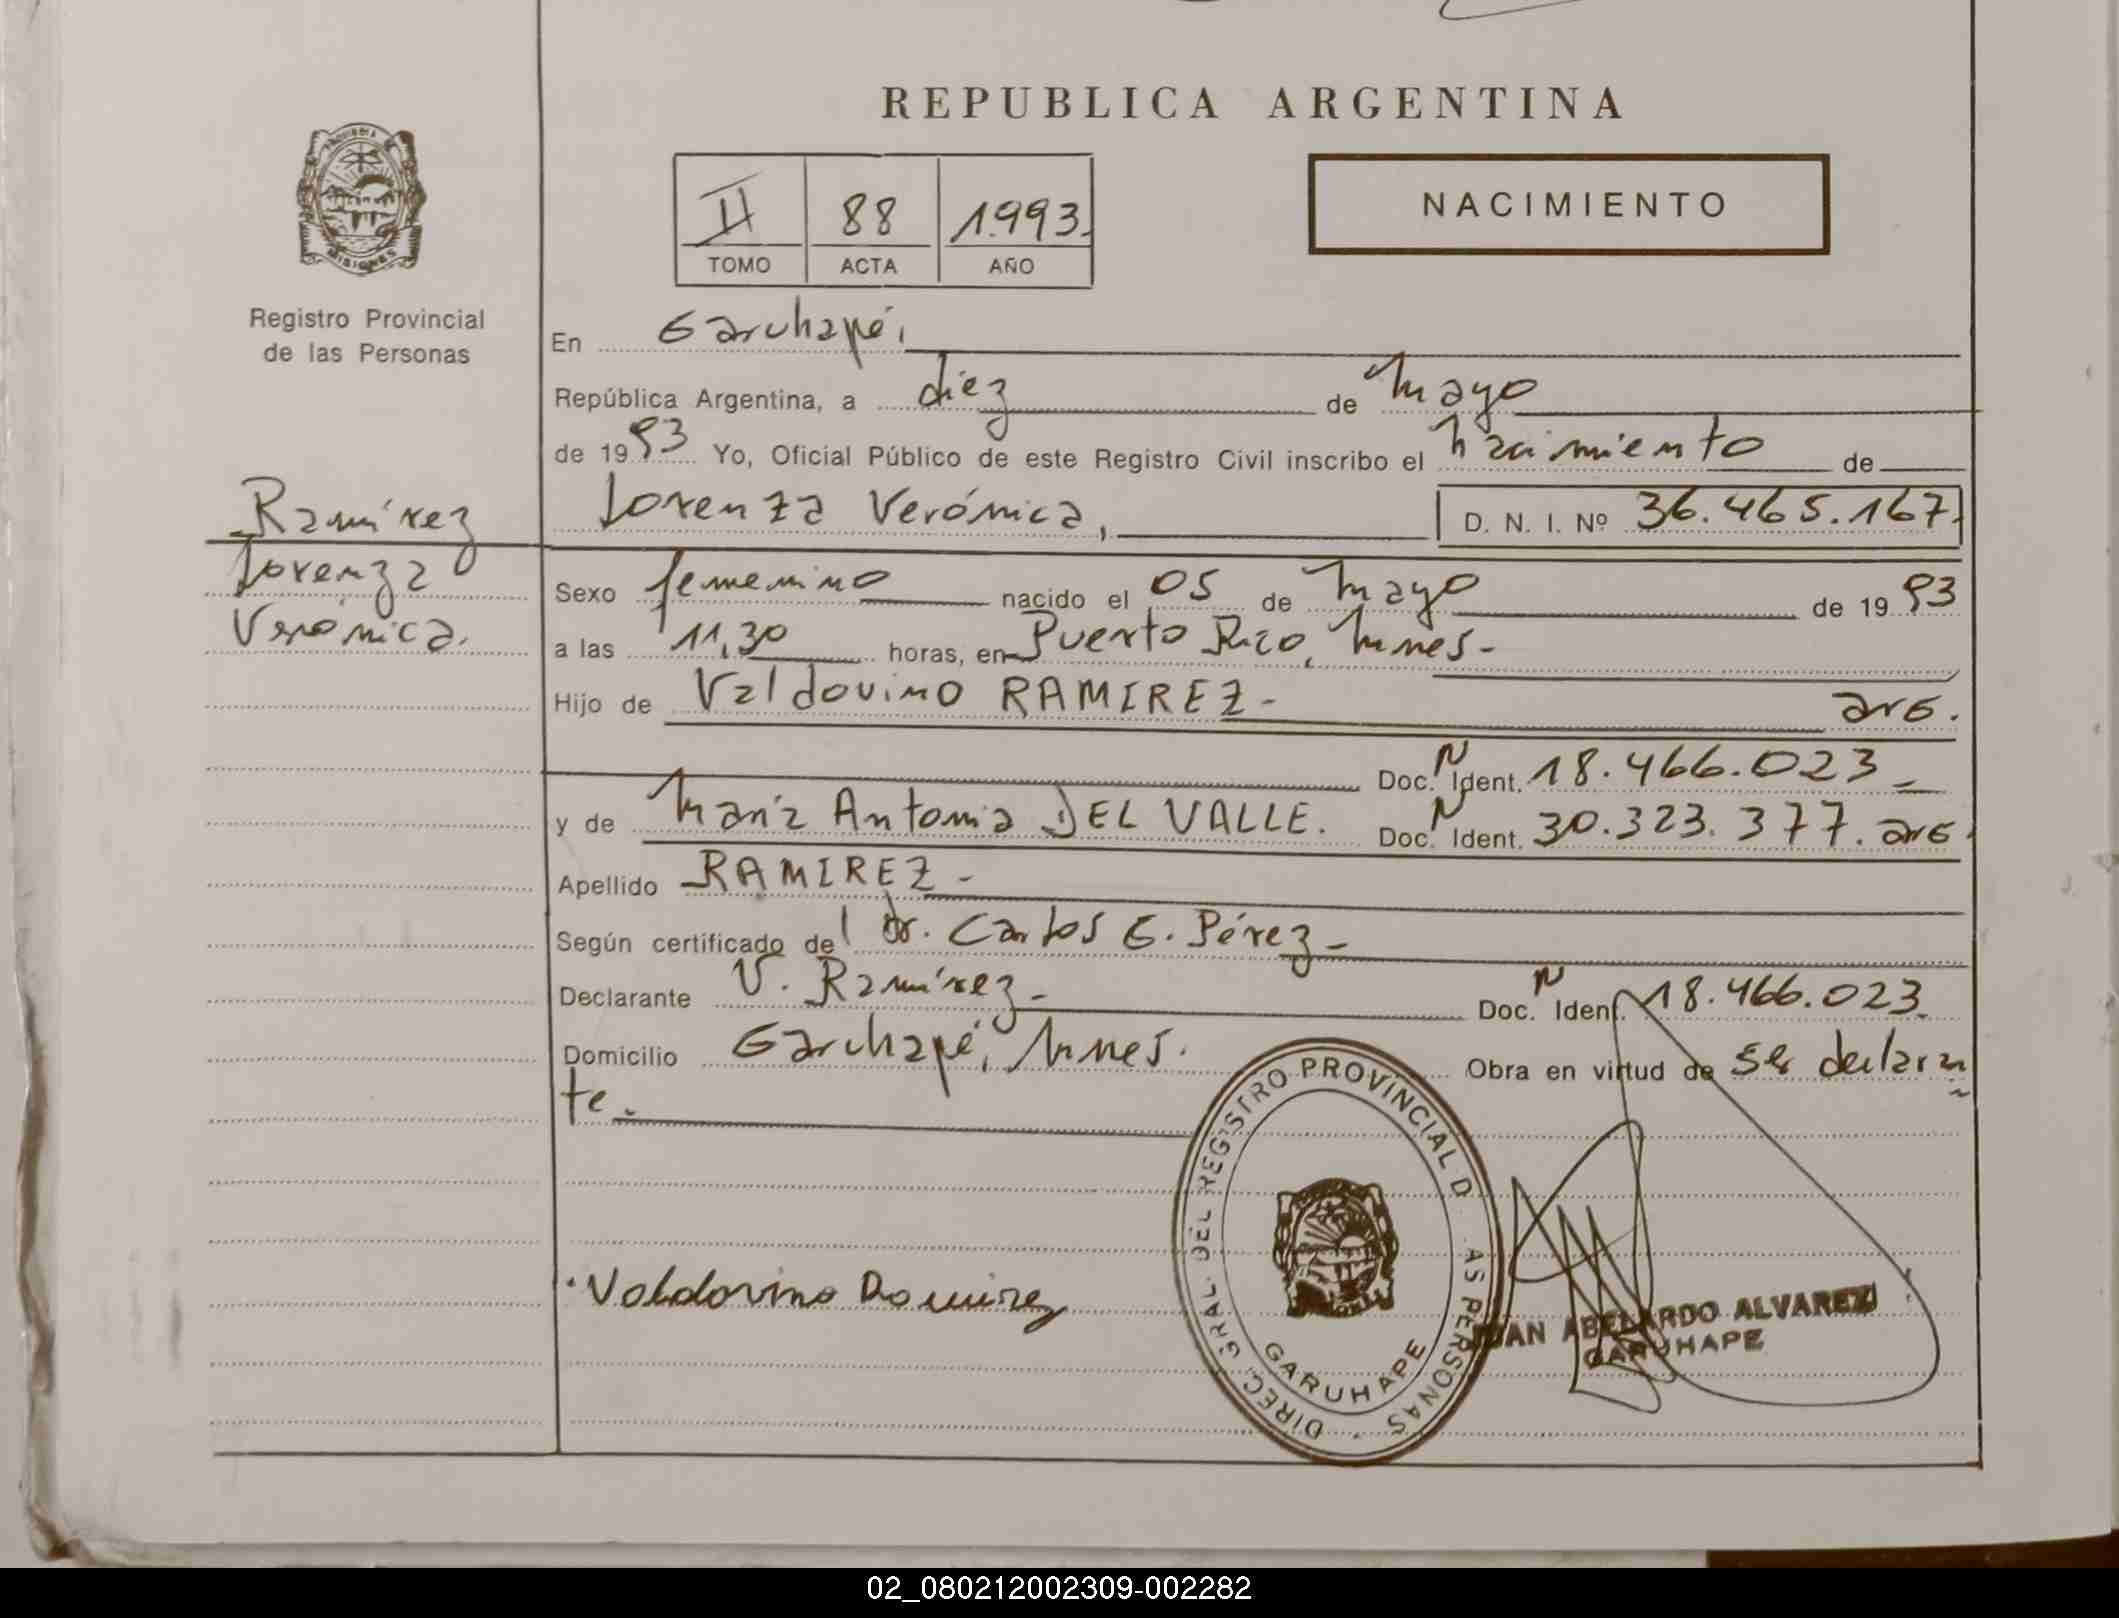 REPUBLICA ARGENTINA
PROVINCIA
MISIONES
II 88 1.993.
TOMO ACTA AÑO
NACIMIENTO
Registro Provincial
de las Personas
Ramírez
Lorenza
Verónica.
En Garuhapé,
República Argentina, a diez de mayo
de 1993 Yo, Oficial Público de este Registro Civil inscribo el nacimiento de
Lorenza Verónica, D. N. I. Nº 36.465.167.
Sexo femenino nacido el 05 de mayo de 1993
a las 11,30 horas, en Puerto Rico, Mnes-
Hijo de Valdovino RAMIREZ- arg.
Doc. N Ident. 18.466.023-
y de María Antonia DEL VALLE. Doc. N Ident. 30.323.377. arg.
Apellido RAMIREZ-
Según certificado del dr. Carlos G. Pérez-
Declarante V. Ramírez- Doc. N Ident. 18.466.023.
Domicilio Garuhapé, Mnes. Obra en virtud de ser declaran
te.
DIREC. GRAL. DEL REGISTRO PROVINCIAL D AS PERSONAS
GARUHAPE
Valdovino Ramirez
JUAN ABELARDO ALVAREZ
GARUHAPE
02_080212002309-002282